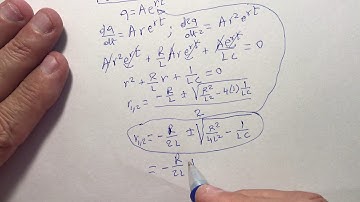 q = Ae^{rt}
dq/dt = Are^{rt} ; dq/dt² = Ar²e^{rt}
Ar²e^{rt} + R/L Are^{rt} + Ae^{rt}/LC = 0
r² + R/L r + 1/LC = 0
r₁,₂ = (-R/L ± √(R²/L² - 4(1) 1/LC)) / 2
r₁,₂ = -R/2L ± √(R²/4L² - 1/LC)
= -R/2L